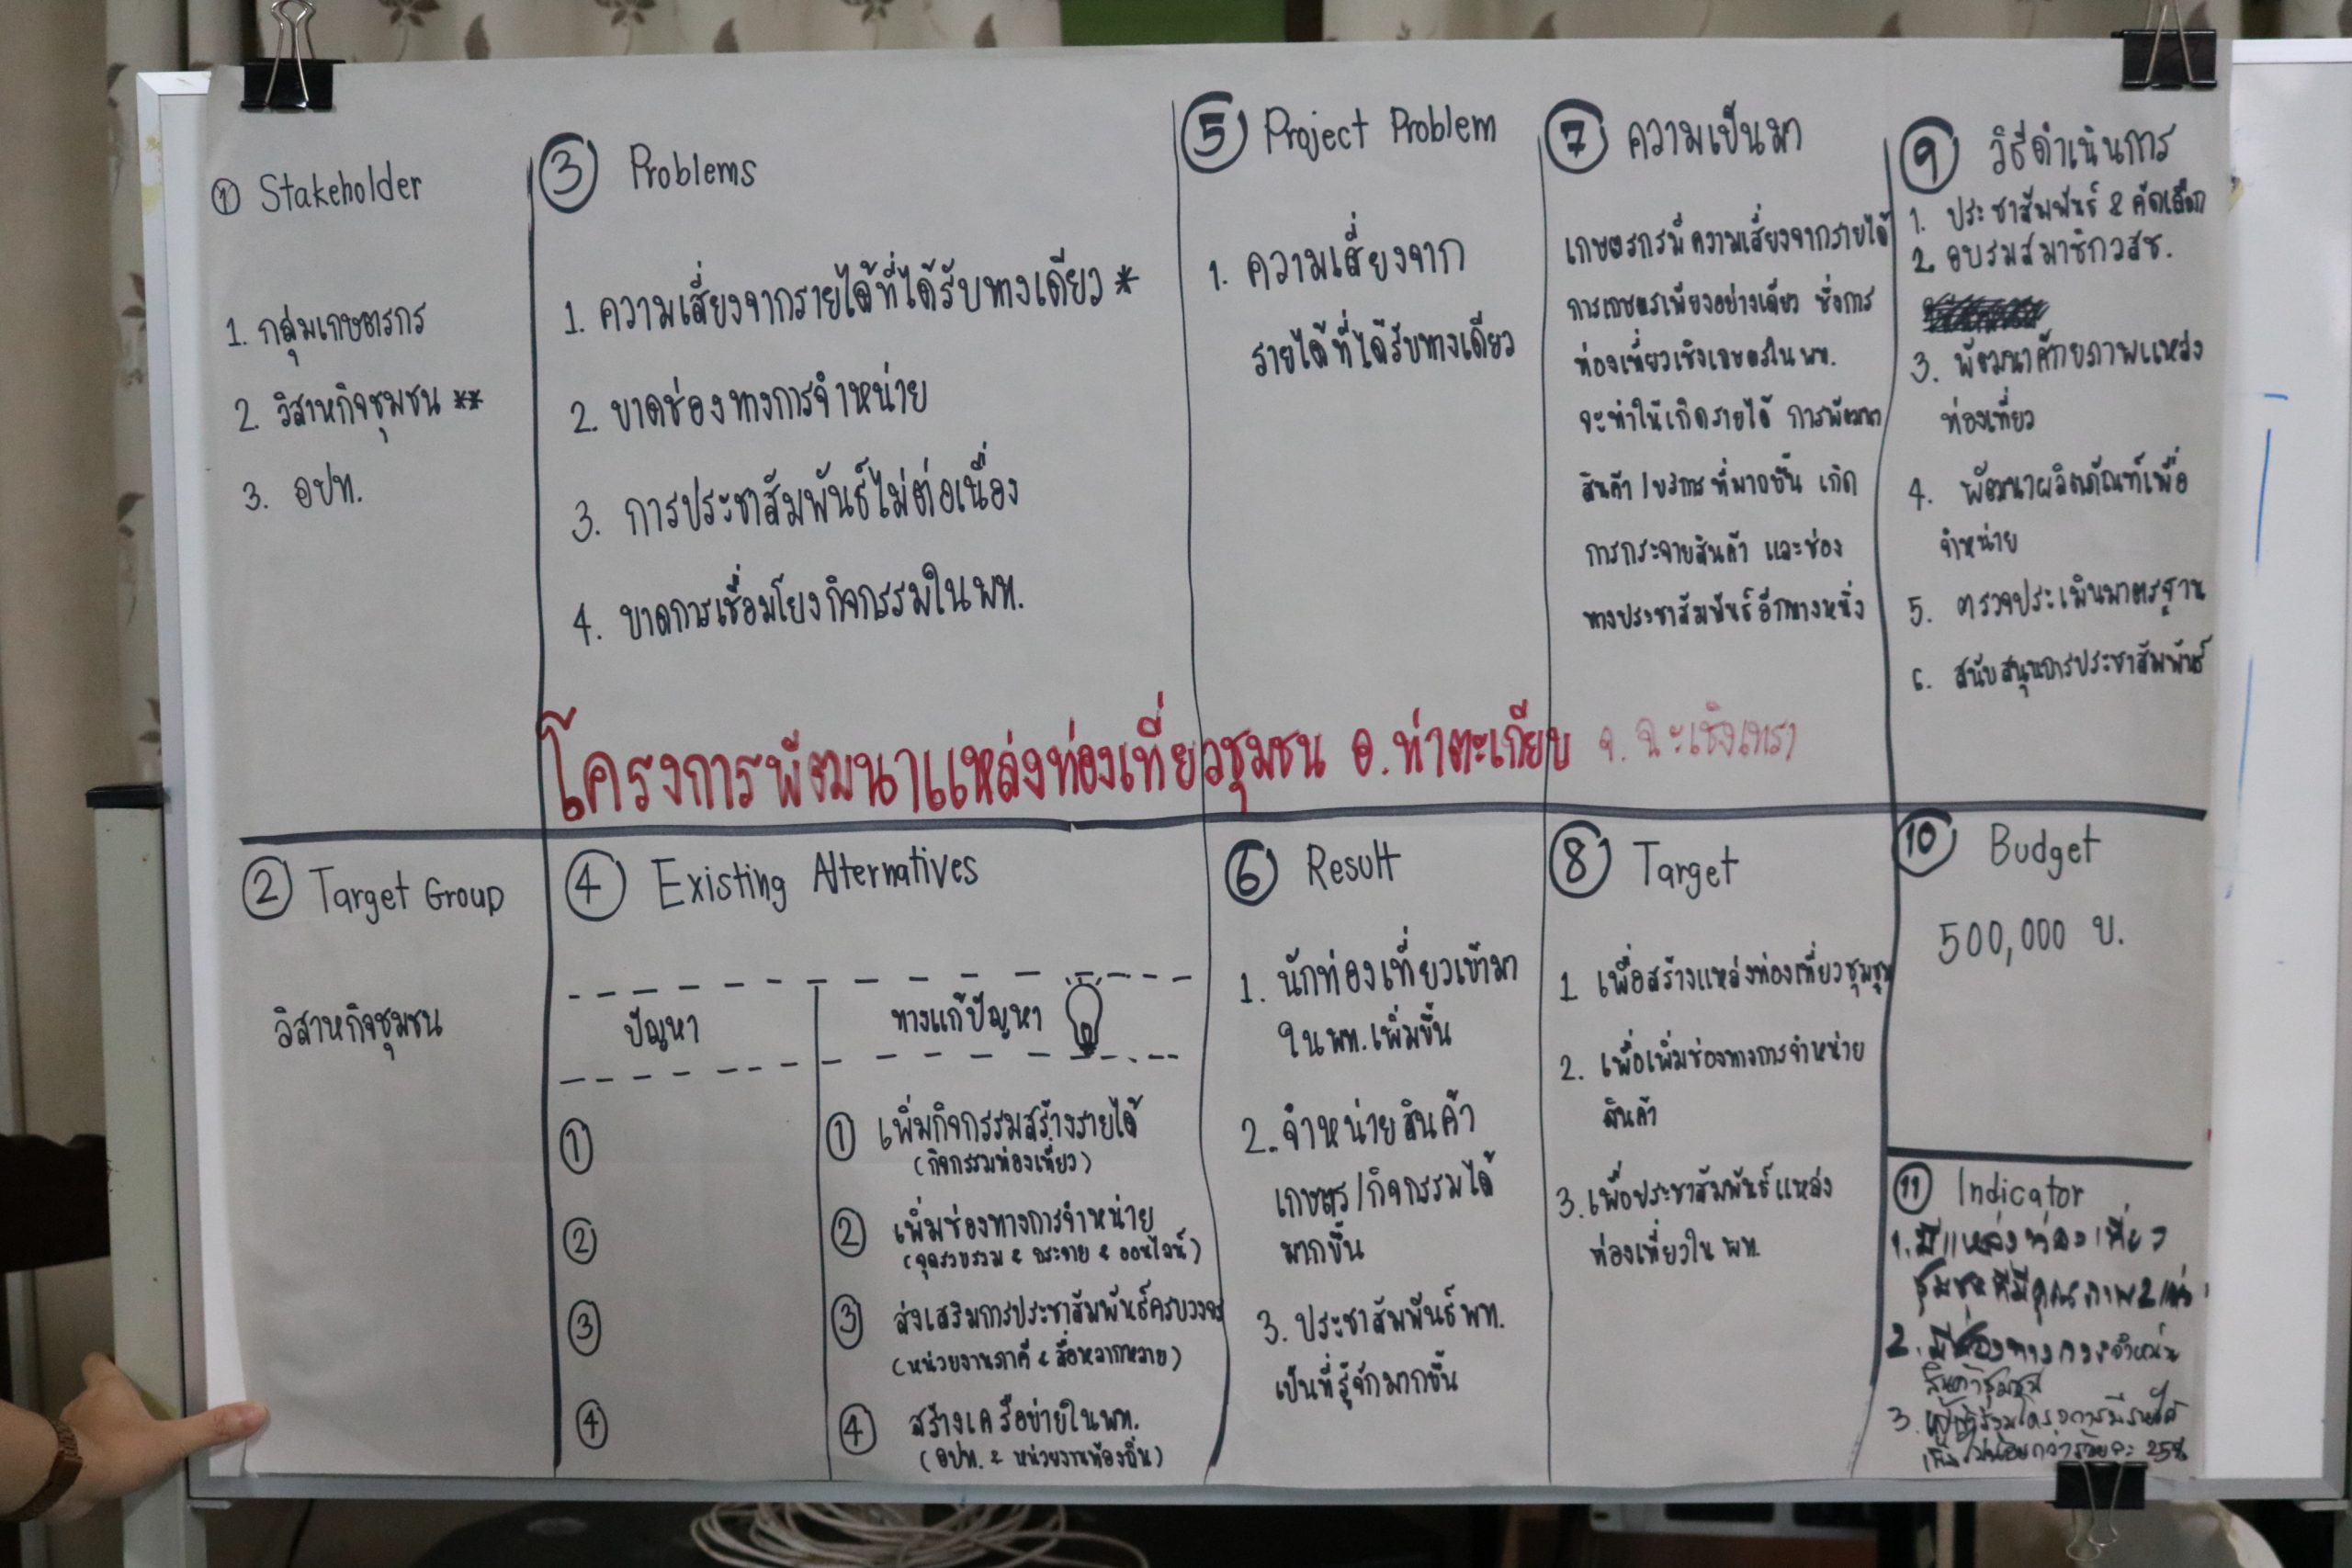 ① Stakeholder
1. กลุ่มเกษตรกร
2. วิสาหกิจชุมชน **
3. อปท.
③ Problems
1. ความเสี่ยงจากรายได้ที่ได้รับทางเดียว *
2. ขาดช่องทางการจำหน่าย
3. การประชาสัมพันธ์ไม่ต่อเนื่อง
4. ขาดการเชื่อมโยงกิจกรรมใน พท.
⑤ Project Problem
1. ความเสี่ยงจาก
รายได้ที่ได้รับทางเดียว
⑦ ความเป็นมา
เกษตรกรมีความเสี่ยงจากรายได้
การเกษตรเพียงอย่างเดียว ซึ่งการ
ท่องเที่ยวเชิงเกษตรใน พท.
จะทำให้เกิดรายได้ การพัฒนา
สินค้า/บริการ ที่มากขึ้น เกิด
การกระจายสินค้า และช่อง
ทางประชาสัมพันธ์อีกทางหนึ่ง
⑨ วิธีดำเนินการ
1. ประชาสัมพันธ์ & คัดเลือก
2. อบรมสมาชิกวสช.
3. พัฒนาศักยภาพแหล่ง
ท่องเที่ยว
4. พัฒนาผลิตภัณฑ์เพื่อ
จำหน่าย
5. ตรวจประเมินมาตรฐาน
6. สนับสนุนการประชาสัมพันธ์
โครงการพัฒนาแหล่งท่องเที่ยวชุมชน อ.ท่าตะเกียบ จ.ฉะเชิงเทรา
② Target Group
วิสาหกิจชุมชน
④ Existing Alternatives
ปัญหา ทางแก้ปัญหา
① ① เพิ่มกิจกรรมสร้างรายได้
(กิจกรรมท่องเที่ยว)
② ② เพิ่มช่องทางการจำหน่าย
(จุดรวบรวม & กระจาย & ออนไลน์)
③ ③ ส่งเสริมการประชาสัมพันธ์ครบวงจร
(หน่วยงานภาคี & สื่อหลากหลาย)
④ ④ สร้างเครือข่ายใน พท.
(อปท. & หน่วยงานท้องถิ่น)
⑥ Result
1. นักท่องเที่ยวเข้ามา
ใน พท. เพิ่มขึ้น
2. จำหน่ายสินค้า
เกษตร/กิจกรรมได้
มากขึ้น
3. ประชาสัมพันธ์ พท.
เป็นที่รู้จักมากขึ้น
⑧ Target
1 เพื่อสร้างแหล่งท่องเที่ยวชุมชน
2. เพื่อเพิ่มช่องทางการจำหน่าย
สินค้า
3. เพื่อประชาสัมพันธ์แหล่ง
ท่องเที่ยวใน พท.
⑩ Budget
500,000 บ.
⑪ Indicator
1. มีแหล่งท่องเที่ยว
ชุมชนที่มีคุณภาพ 2 แห่ง
2. มีช่องทางการจำหน่าย
สินค้าชุมชน
3. ผู้เข้าร่วมโครงการมีรายได้
เพิ่มไม่น้อยกว่าร้อยละ 25%